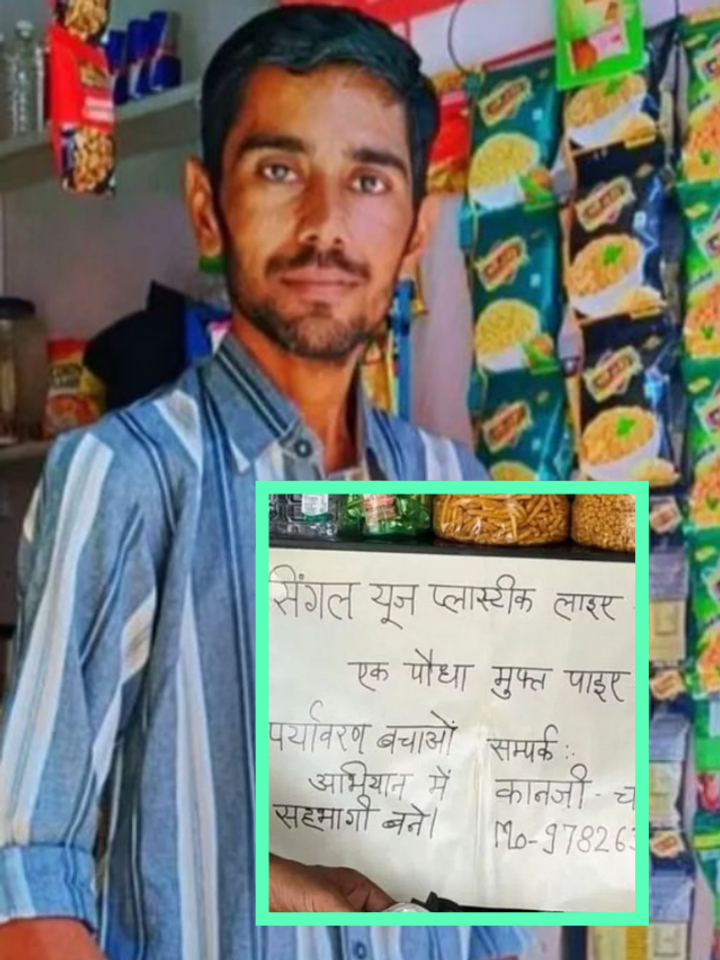 सिंगल यूज प्लास्टीक लाइए
एक पौधा मुफ्त पाइए
पर्यावरण बचाओं
अभियान में
सहभागी बने।
सम्पर्क :
कानजी - च
Mo-97826